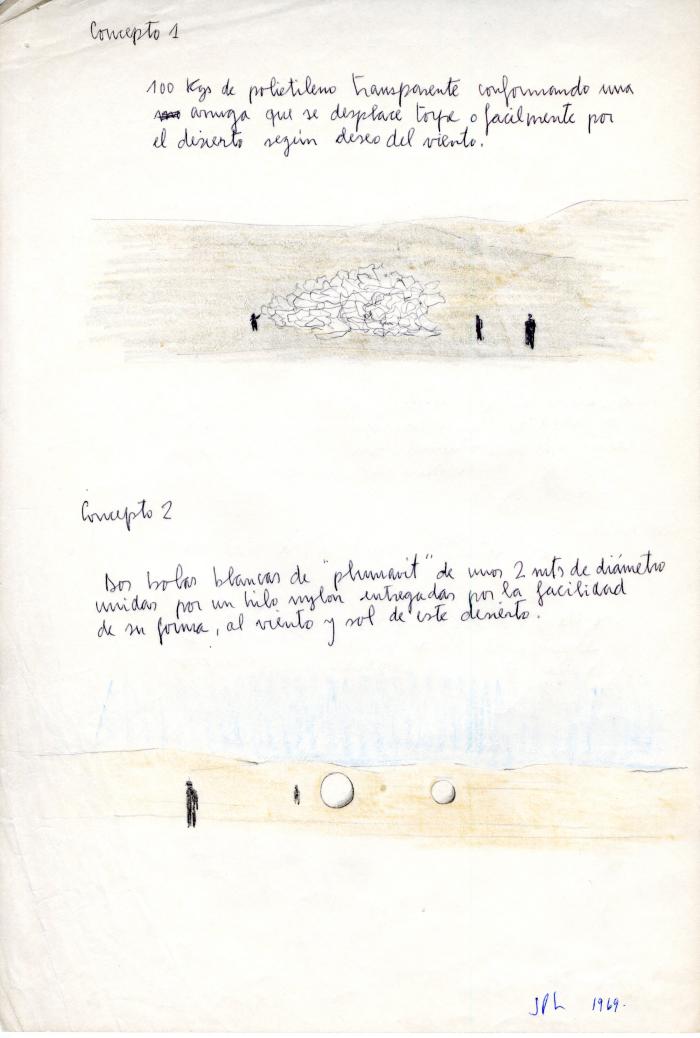 Concepto 1
100 Kgs de polietileno transparente conformando una
arruga que se desplace torpe o facilmente por
el desierto según deseo del viento.
Concepto 2
Dos bolas blancas de "plumavit" de unos 2 mts de diámetro
unidas por un hilo nylon entregadas por la facilidad
de su forma, al viento y sol de este desierto.
JPL 1969.